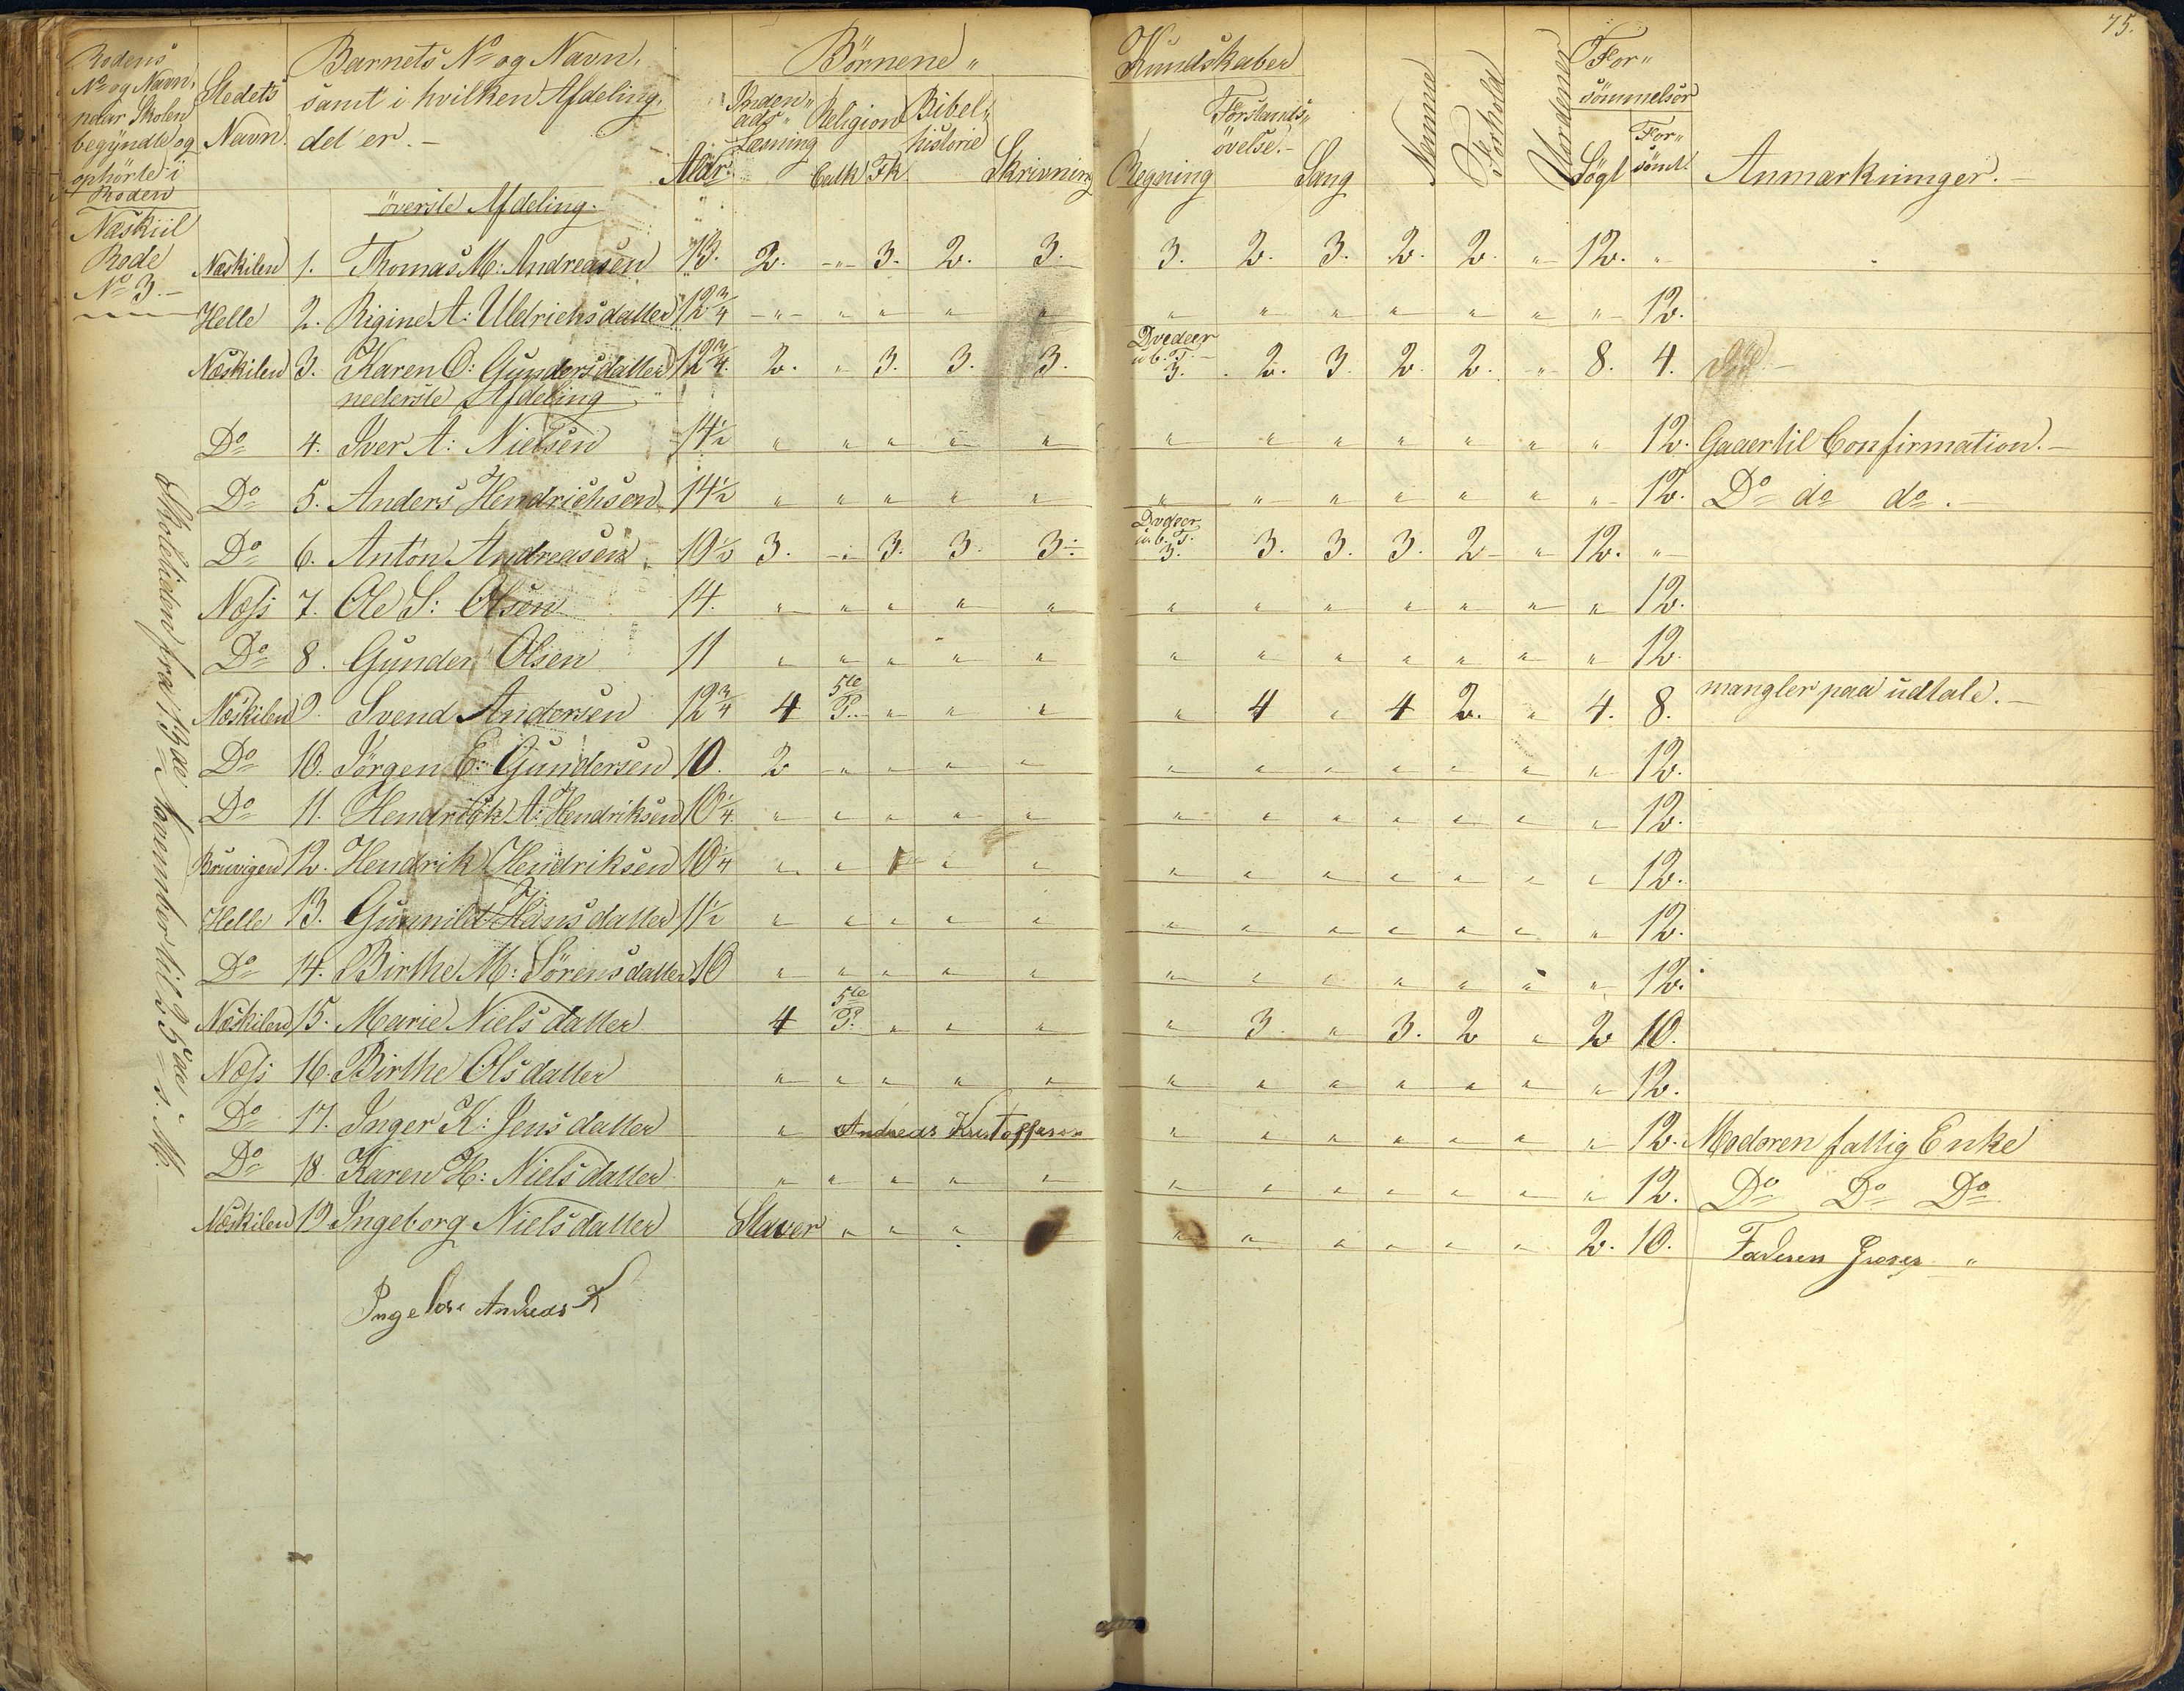 75.
Rodens
No og Navn,
naar Skolen
begyndte og
ophörte i
Roden
Stedets
Navn.
Barnets No og Navn,
samt i hvilken Afdeling,
det er. —
Alder.
Börnene „
Inden„
ads„
Læsning
Religion
Catk Fk
Bibel„
historie
Skrivning
Kundskaber
Regning
Forstands„
övelse. —
Sang
Nemme
Forhold
Uordener
For„
sömmelser
Sögt
For„
sömt.
Anmærkninger. —
överste Afdeling.
Næskiil
Rode
No 3. —
Næskilen 1. Thomas M: Andreasen 13. 2. „ 3. 2. 3. 3. 2. 3. 2. 2. „ 12. „
Helle 2. Rigine A: Uldrichsdatter 12 3/4 „ „ „ „ „ „ „ „ „ „ „ „ 12.
Næskilen 3. Karen O: Gundersdatter 12 3/4. 2. „ 3. 3. 3. 3. 2. 3. 2. 2. „ 8. 4.
nederste Afdeling „
Do 4. Iver A: Nielsen 14 1/2 „ „ „ „ „ „ „ „ „ „ „ „ 12. Gaaer til Confirmation. —
Do 5. Anders Hendrichsen 14 1/2 „ „ „ „ „ „ „ „ „ „ „ „ 12. Do do do. —
Do 6. Anton Andreasen 10 1/2 3. „ 3. 3. 3. 3. 3. 3. 3. 2 „ 12. „
Næss 7. Ole S: Olsen 14. „ „ „ „ „ „ „ „ „ „ „ „ 12.
Do 8. Gunder Olsen 11 „ „ „ „ „ „ „ „ „ „ „ „ 12.
Næskilen 9. Svend Andersen 12 3/4 4 5te P. „ „ „ „ 4 „ 4 2. „ 4. 8. mangler paa udtale. —
Do 10. Jörgen E: Gundersen 10. 2 „ „ „ „ „ „ „ „ „ „ „ 12.
Do 11. Hendrick A: Hendriksen 10 1/4. „ „ „ „ „ „ „ „ „ „ „ „ 12.
Bruvigen 12. Hendrik Hendriksen 10 1/4 „ „ „ „ „ „ „ „ „ „ „ 12.
Helle 13. Gunnild Hansdatter 11 1/2 „ „ „ „ „ „ „ „ „ „ „ „ 12.
Do 14. Birthe M: Sörensdatter 10 „ „ „ „ „ „ „ „ „ „ „ „ 12.
Næskilen 15. Marie Nielsdatter 4 5te P. „ „ „ „ 3. „ 3. 2 „ 2 10.
Næss 16. Birthe Olsdatter „ „ „ „ „ „ „ „ „ „ „ „ 12.
Do 17. Inger K: Jensdatter „ Andreas Kristoffersen „ „ „ „ „ „ „ 12. Moderen fattig Enke
Do 18. Karen H: Nielsdatter „ „ „ „ „ „ „ „ „ „ „ „ 12. Do Do Do
Næskilen 19. Ingeborg Nielsdatter Staver „ „ „ „ „ „ „ „ „ 2. 10. Faderen „
Andreas K
Skoletiden fra 13de November til 25de s. M. —